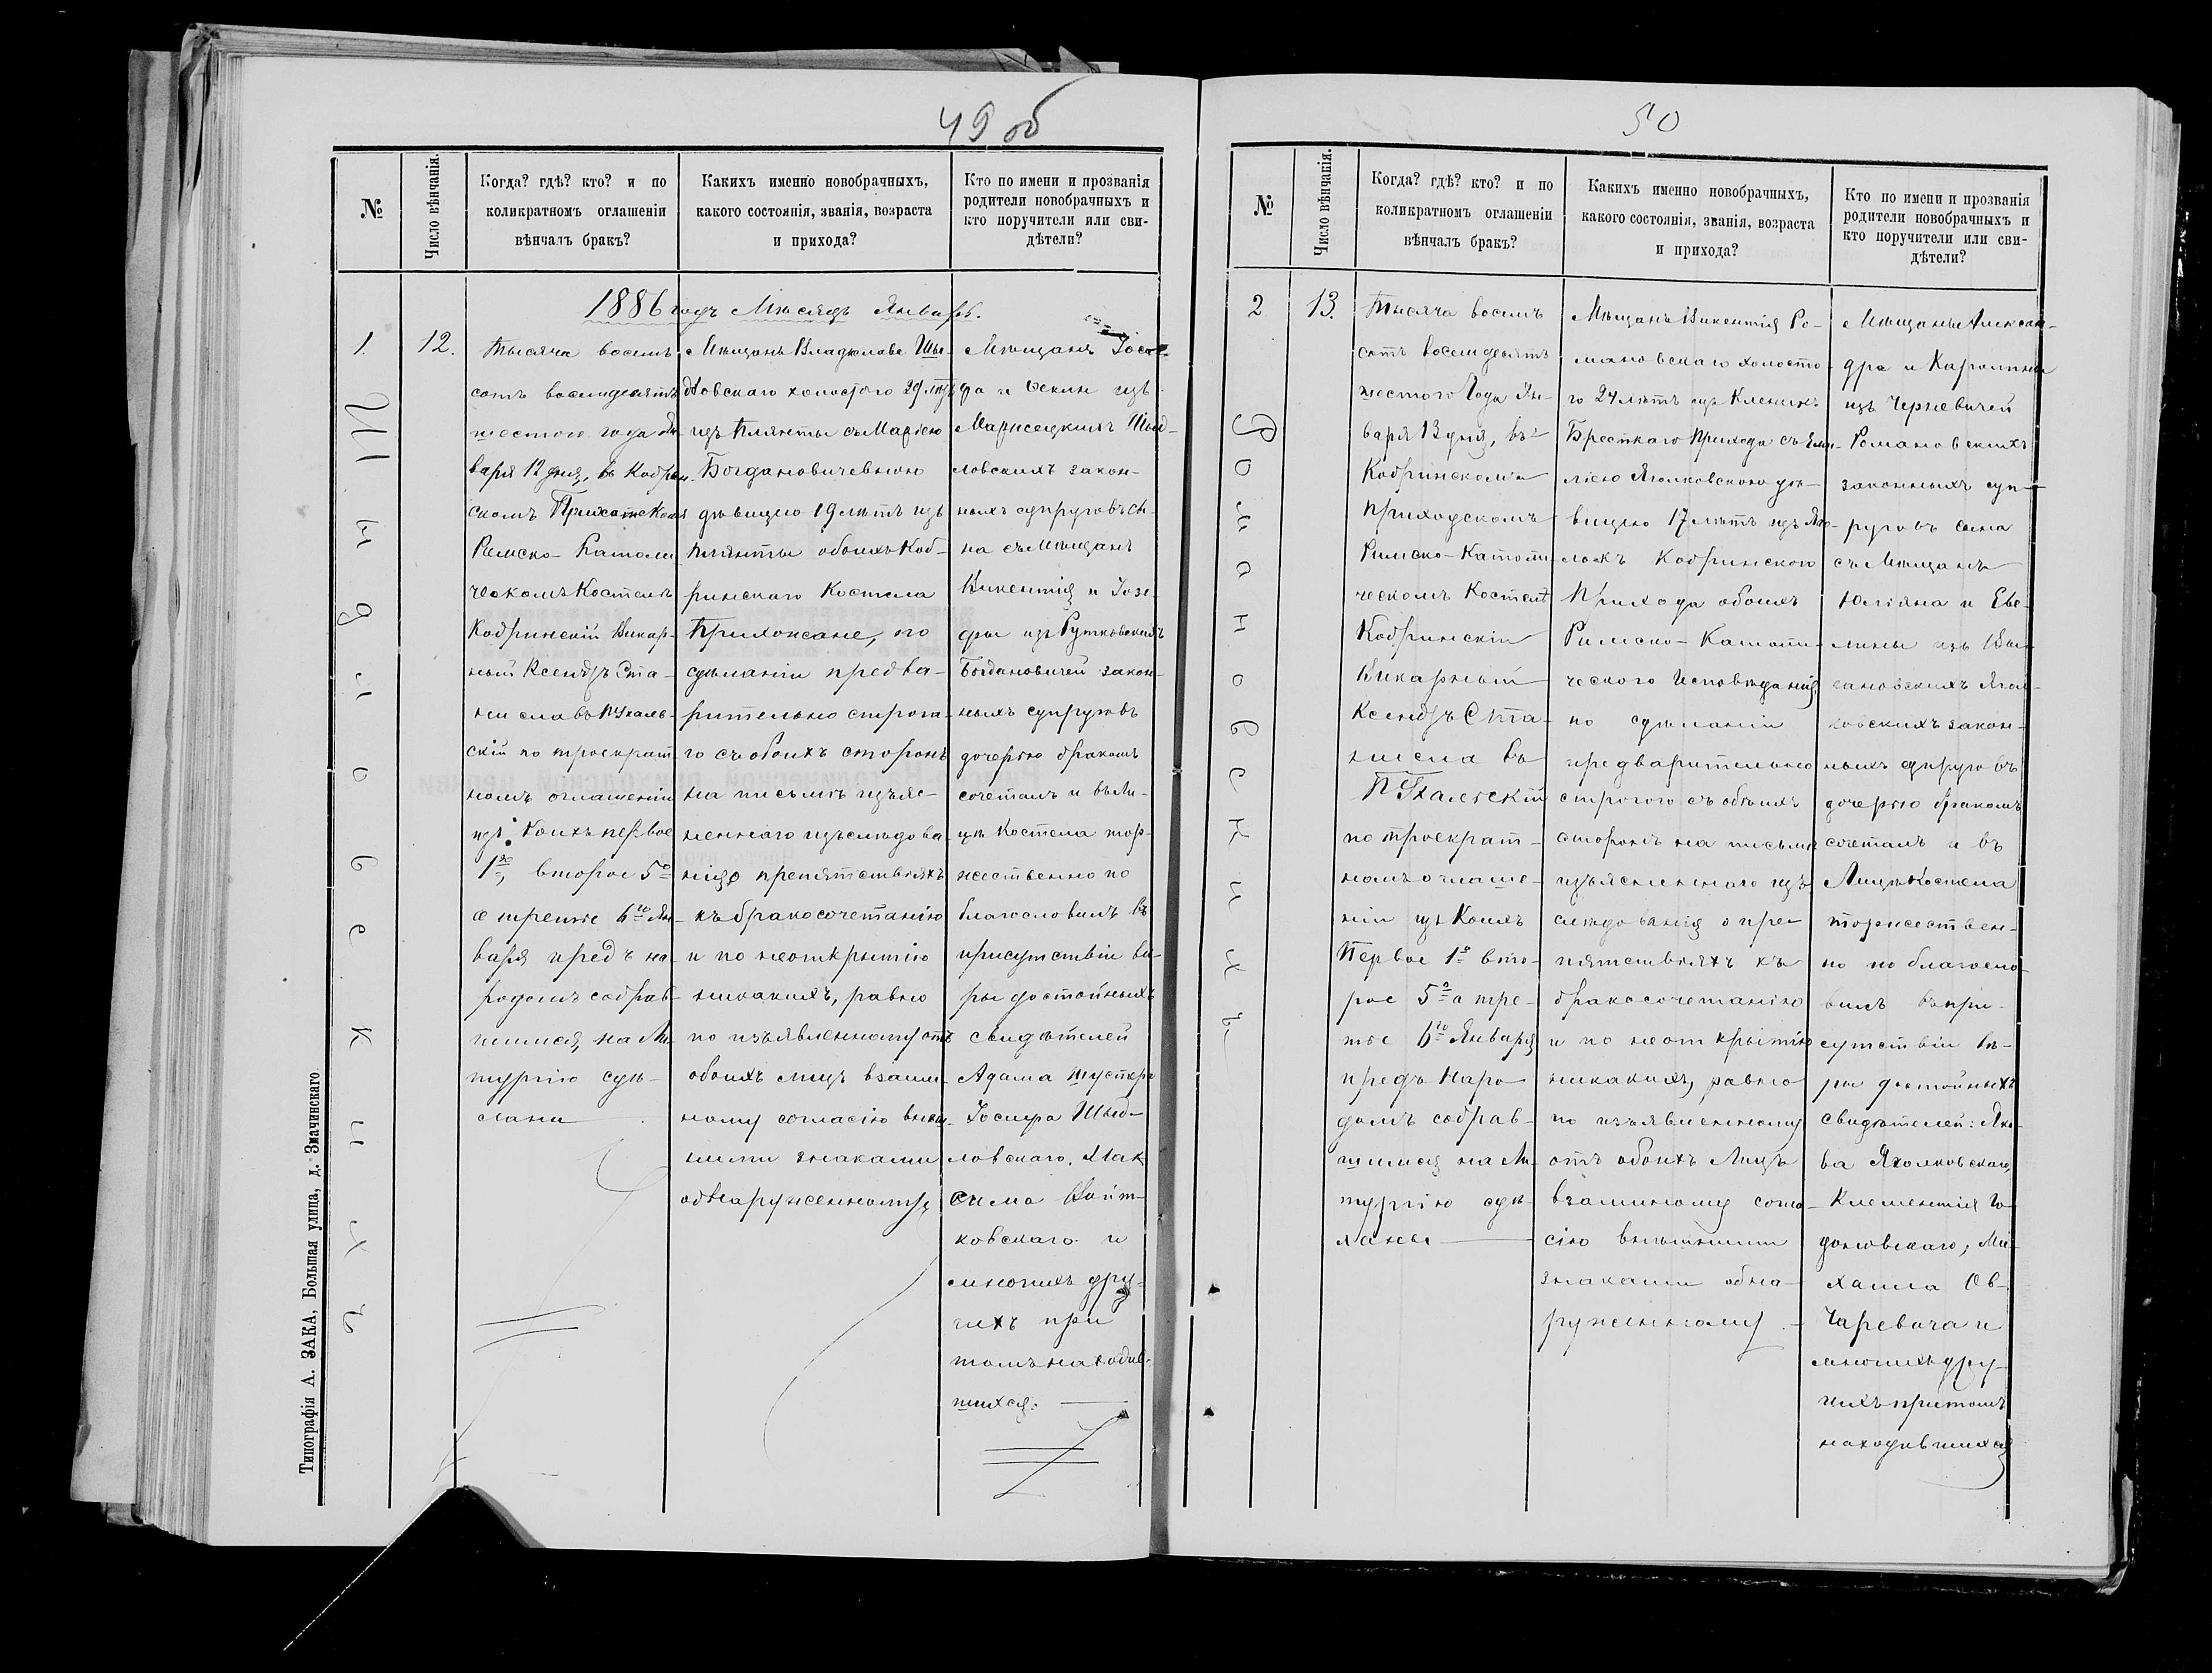 49 об
№
Число вѣнчанія.
Когда? гдѣ? кто? и по
коликратномъ оглашеніи
вѣнчалъ бракъ?
Какихъ именно новобрачныхъ,
какого состоянія, званія, возраста
и прихода?
Кто по имени и прозванія
родители новобрачныхъ и
кто поручители или сви-
дѣтели?
1886 годъ Мѣсяцъ Январь.
1
Шыдловскихъ
12.
Тысяча восемь
сотъ восемдесятъ
шестого года Ян-
варя 12 дня, въ Кобрин-
скомъ Приходскомъ
Римско-Католи
ческомъ Костелѣ
Кобринскій Викар-
ный Ксендзъ Ста-
ниславъ Пухаль-
скій по троекрат-
номъ оглашеніи
изъ Коихъ первое
1го, второе 5о
а третье 6го Ян-
варя предъ на-
родомъ собрав-
шимся, на Ли-
тургію сдѣ-
ланы
Мѣщанъ Владислава Шы-
дловскаго холостого 29 лѣтъ
изъ Плянты съ Маріею
Богдановичевною
дѣвицею 19 лѣтъ изъ
Плянты обоихъ Коб-
ринскаго Костела
Прихожане, по
сдѣланіи предва-
рительно строга-
го съ обоихъ сторонъ
на письмѣ изъяс-
неннаго изъслѣдова-
нія о препятствіяхъ
къ бракосочетанію
и по неоткрытію
никакихъ, равно
по изъявленному отъ
обоихъ лицъ взаим-
ному согласію внѣш-
ними знаками
обнаруженному
Мѣщанъ Іоси-
фа и Фекли изъ
Марисецкихъ Шыд-
ловскихъ закон-
ныхъ супруговъ сы-
на съ Мѣщанъ
Викентія и Іозе-
фы изъ Рутковскихъ
Богдановичей закон-
ныхъ супруговъ
дочерью бракомъ
сочеталъ и въ Ли-
цѣ Костела тор-
жественно по
благословилъ въ
присутствіи вѣ-
ры достойныхъ
свидѣтелей
Адама Шустера
Іосифа Шыд-
ловскаго, Мак
сима Войт-
ковскаго и
многихъ дру-
гихъ при
томъ находив-
шихся.
Типографія А. ЗАКА, Большая улица, д. Значинскаго.
50
№
Число вѣнчанія.
Когда? гдѣ? кто? и по
коликратномъ оглашеніи
вѣнчалъ бракъ?
Какихъ именно новобрачныхъ,
какого состоянія, званія, возраста
и прихода?
Кто по имени и прозванія
родители новобрачныхъ и
кто поручители или сви-
дѣтели?
2
Романовскихъ
13.
Тысяча восемь
сотъ восемдесятъ
шестого Года Ян-
варя 13 дня, въ
Кобринскомъ
Приходскомъ
Римско-Католи
ческомъ Костелѣ
Кобринскій
Викарный
Ксендзъ Ста-
ниславъ
Пухальскій
по троекрат-
номъ оглаше-
ніи изъ Коихъ
Первое 1о вто-
рое 5о а тре-
тье 6го Января
предъ Наро-
домъ собрав-
шимся на Ли-
тургію сдѣ-
ланы
Мѣщанъ Викентія Ро-
мановскаго холосто-
го 24 лѣтъ изъ Клейникъ
Брестскаго Прихода съ Еми-
ліею Яголковскою дѣ-
вицею 17 лѣтъ изъ
Кобринского
Прихода обоихъ
Римско-Католи-
ческого Исповѣданія
по сдѣланіи
предварительно
строгого съ обоихъ
сторонъ на письмѣ
изъясненнаго изъ
слѣдованія о пре-
пятствіяхъ къ
бракосочетанію
и по неоткрытію
никакихъ, равно
по изъявленному
отъ обоихъ Лицъ
взаимному согла-
сію внѣшними
знаками обна-
руженному.
Мѣщанъ Алексан-
дра и Каролины
изъ Черневичей
Романовскихъ
законныхъ суп-
руговъ сына
съ Мѣщанъ
Юліяна и Еве-
лины изъ
Ягол-
ковскихъ закон-
ныхъ супруговъ
дочерью бракомъ
сочеталъ и въ
Лицѣ Костела
торжествен-
но по благосло-
вилъ въ при-
сутствіи вѣ-
ры достойныхъ
свидѣтелей: Яко-
ва Яголковскаго,
Климентія Го-
доновскаго, Ми-
хаила Ов-
чаревича и
многихъ дру-
гихъ притомъ
находившихся